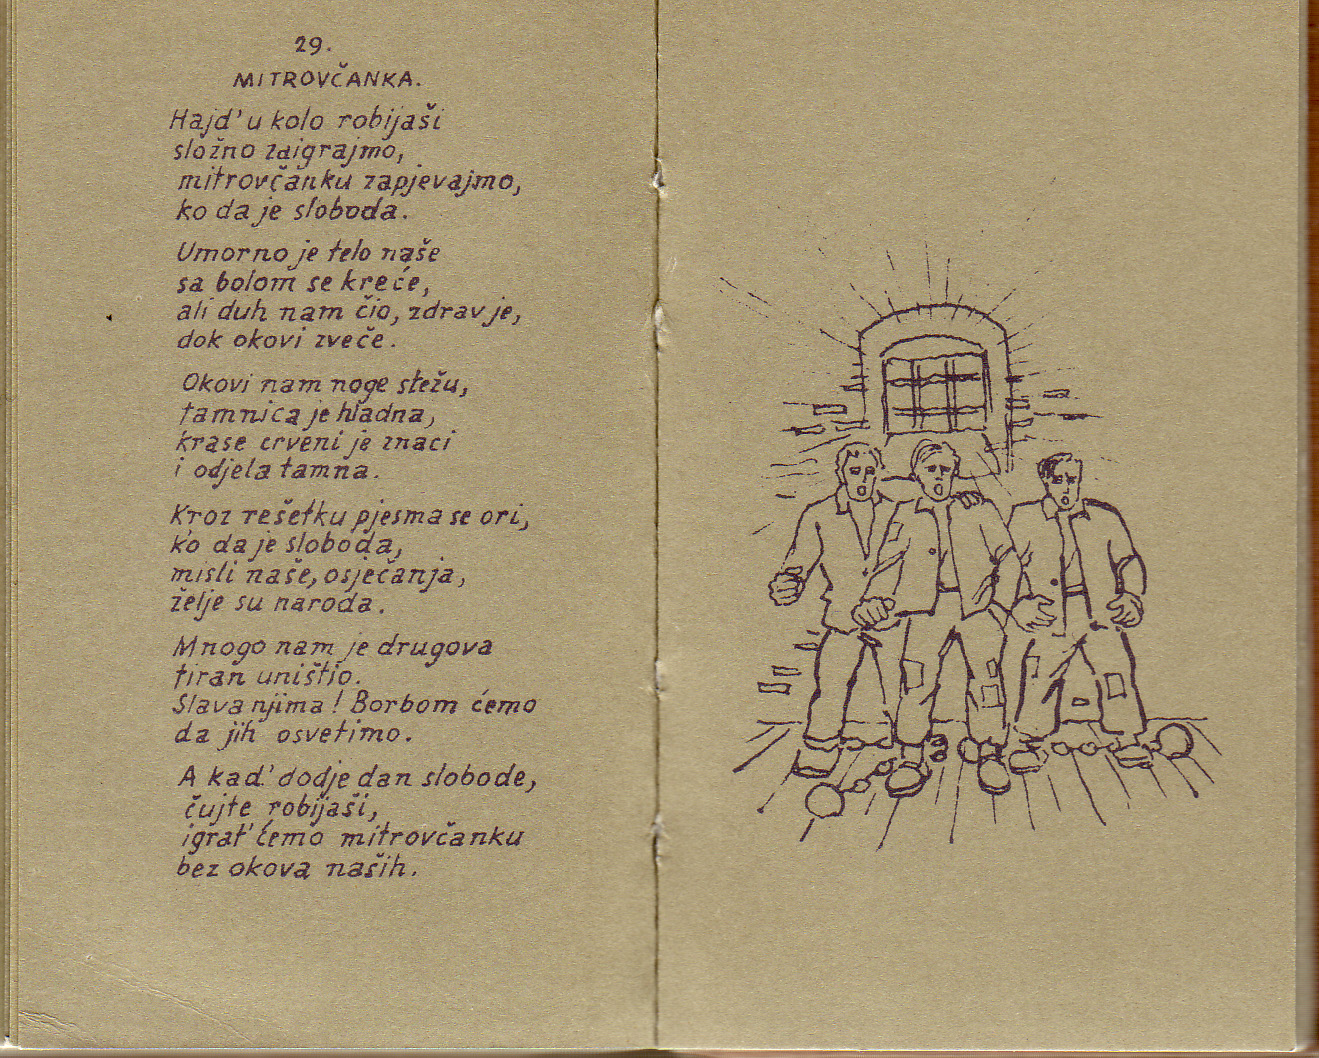 29.
MITROVČANKA.
Hajd' u kolo robijaši
složno zaigrajmo,
mitrovčanku zapjevajmo,
ko da je sloboda.
Umorno je telo naše
sa bolom se kreće,
ali duh nam čio, zdrav je,
dok okovi zveče.
Okovi nam noge stežu,
tamnica je hladna,
krase crveni je znaci
i odjela tamna.
Kroz rešetku pjesma se ori,
ko da je sloboda,
misli naše, osječanja,
želje su naroda.
Mnogo nam je drugova
tiran uništio.
Slava njima! Borbom ćemo
da jih osvetimo.
A kad' dodje dan slobode,
čujte robijaši,
igrat' ćemo mitrovčanku
bez okova naših.